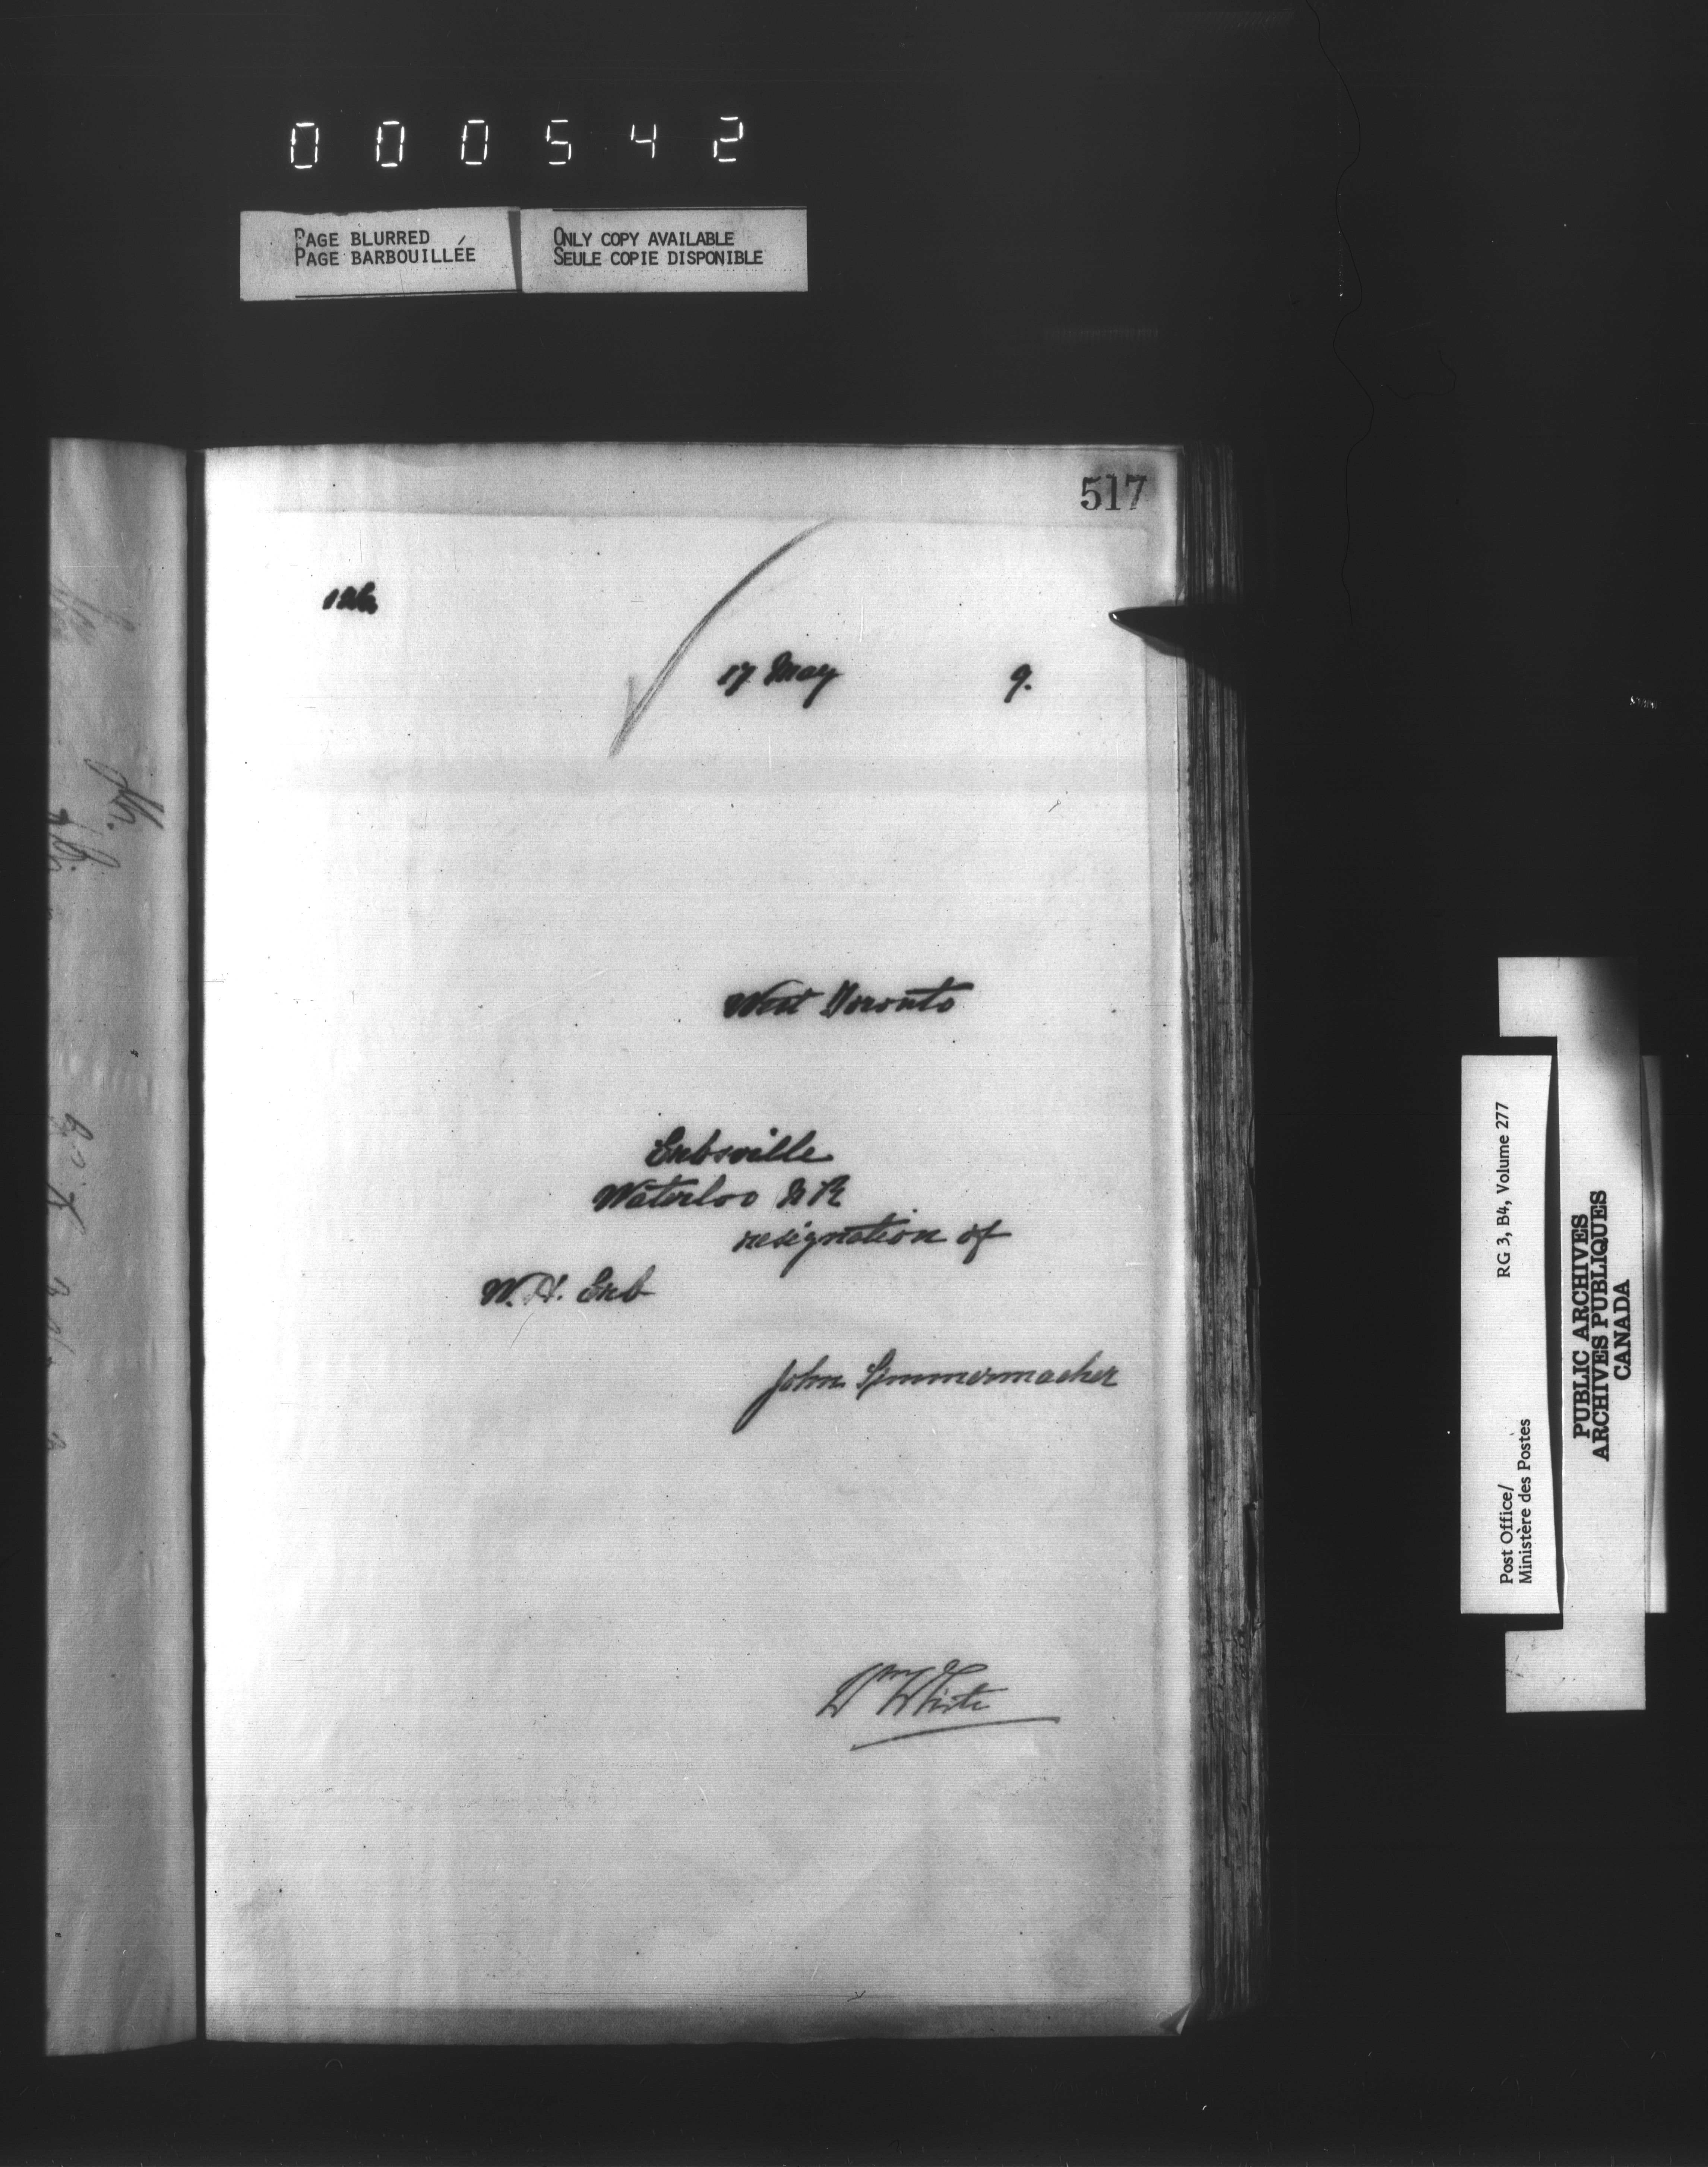 000542
PAGE BLURRED
PAGE BARBOUILLÉE
ONLY COPY AVAILABLE
SEULE COPIE DISPONIBLE
517
17 May 9.
West Toronto
Erbsville
Waterloo N R
resignation of
W. H. Erb
John Simmermacher
Wm White
Post Office/ RG 3, B4, Volume 277
Ministère des Postes
PUBLIC ARCHIVES
ARCHIVES PUBLIQUES
CANADA